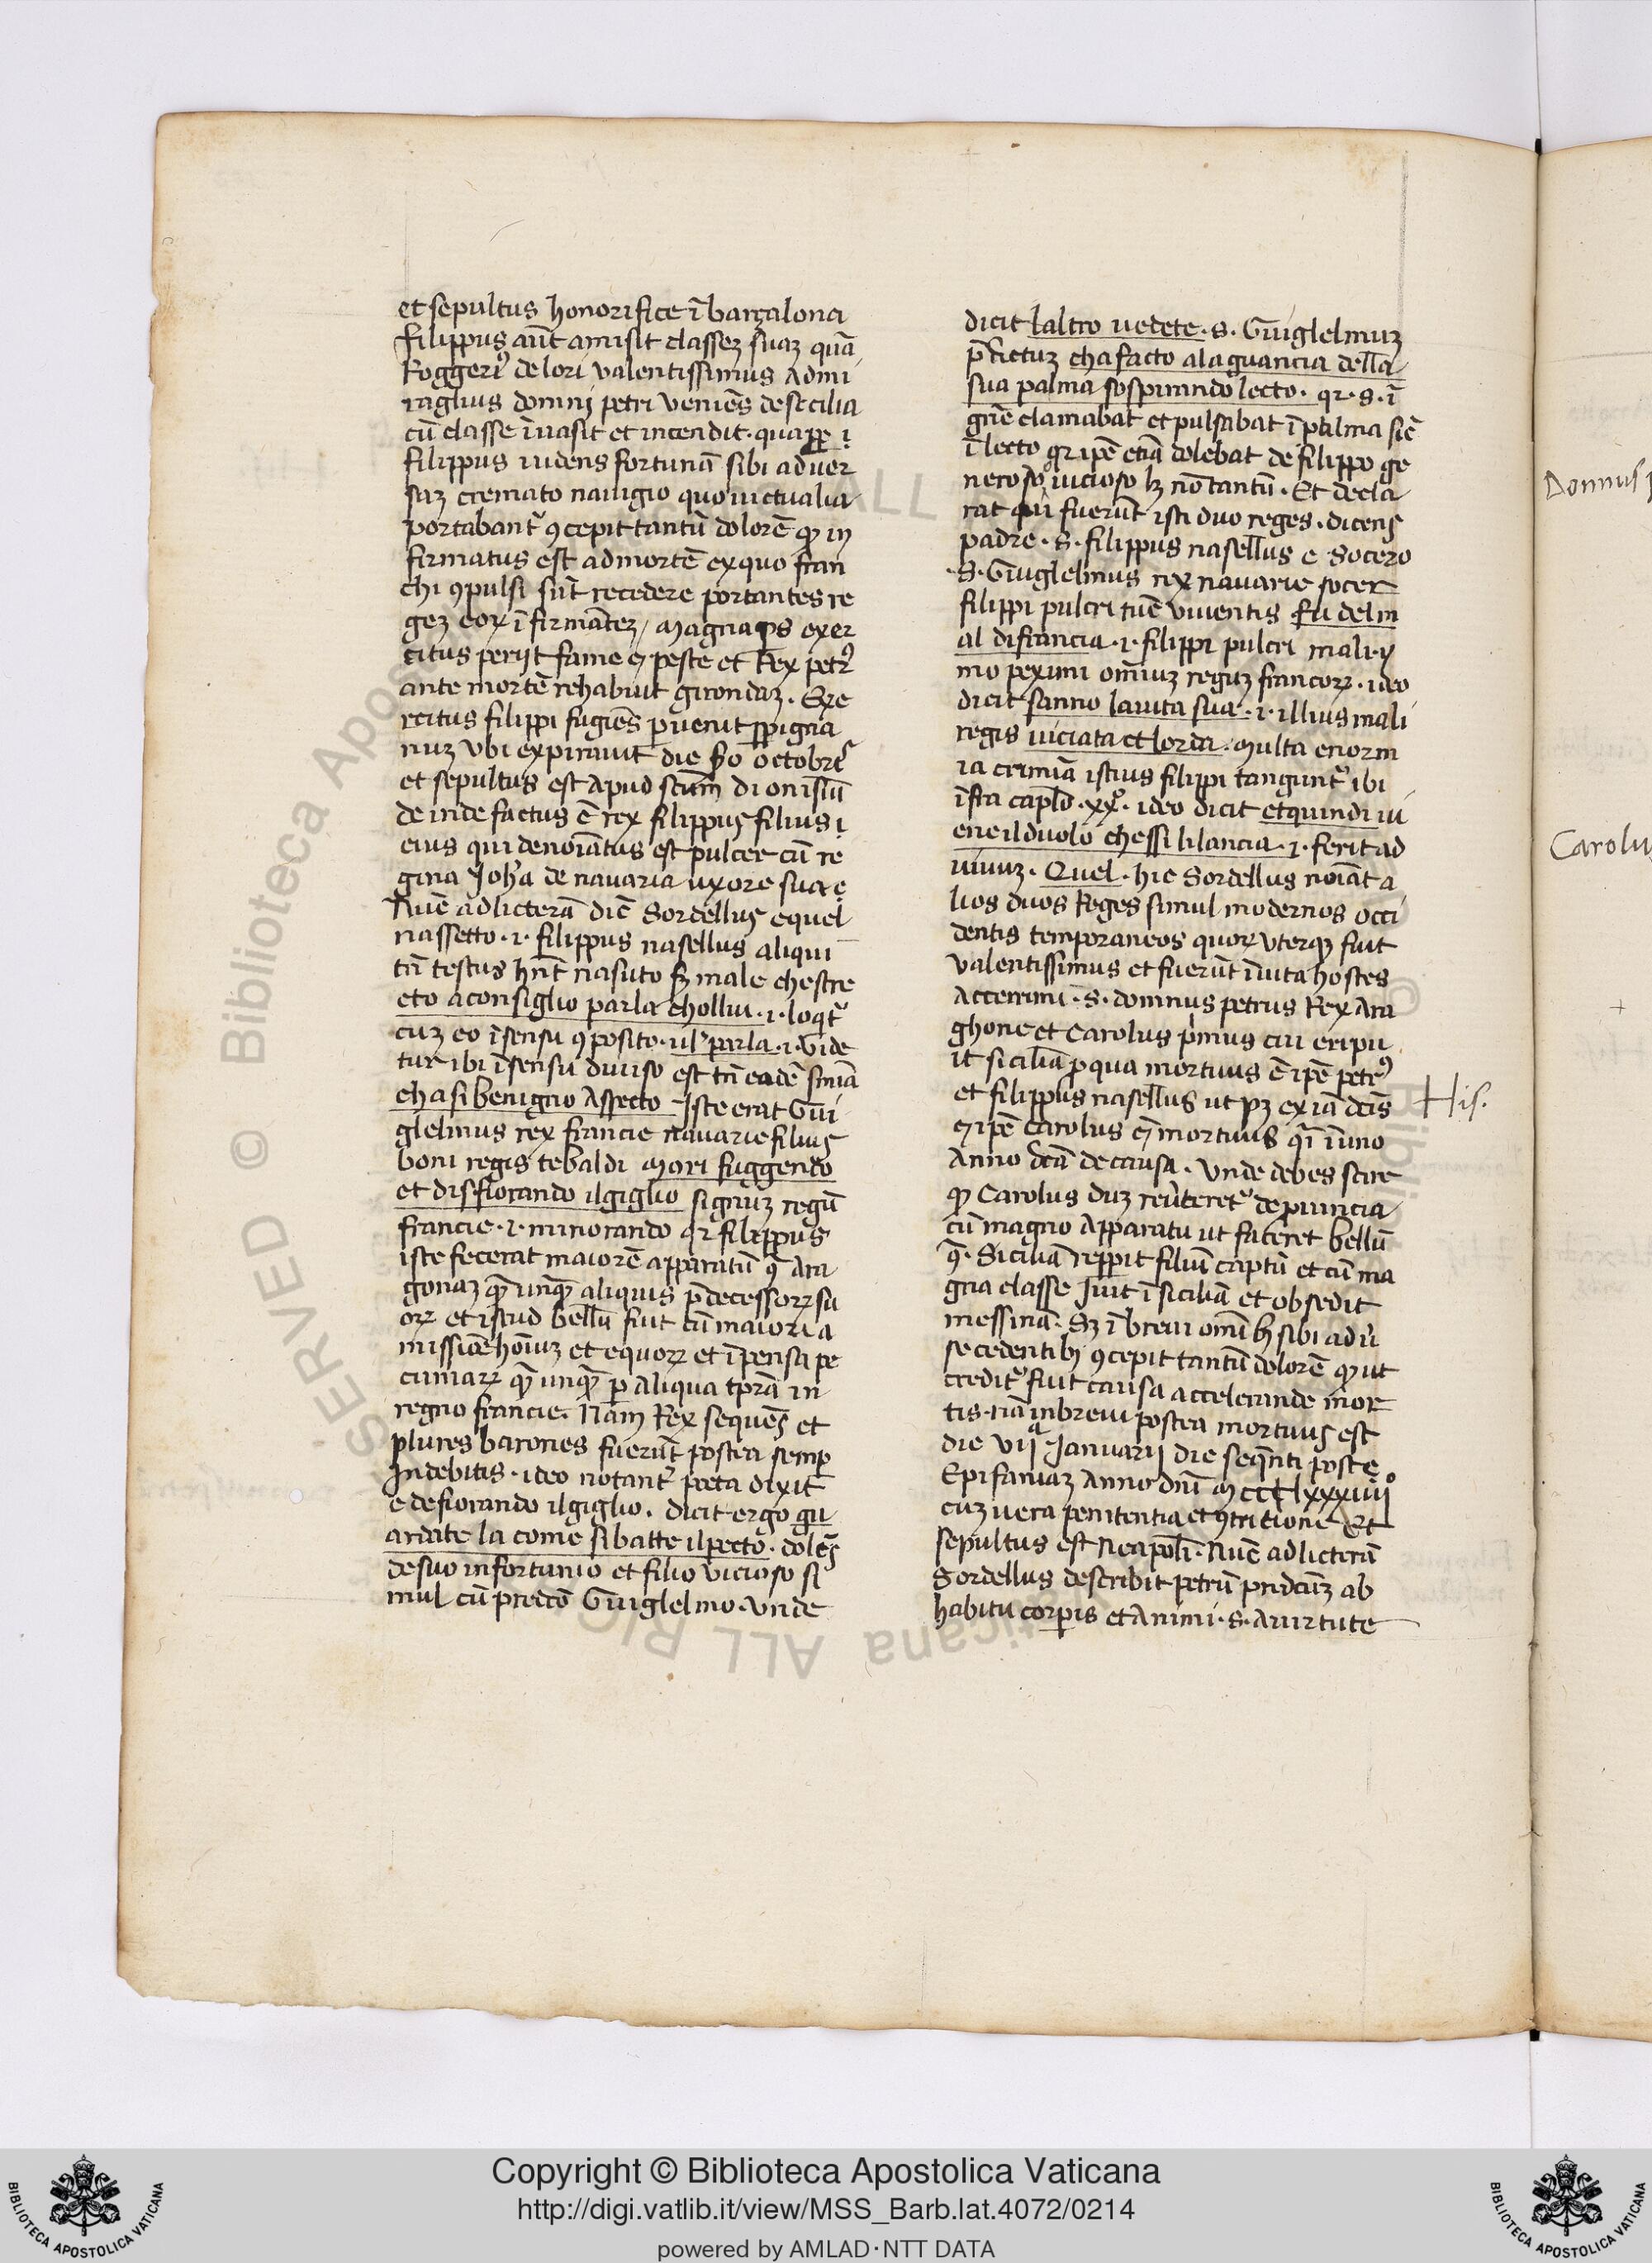 et sepultus honorifice ī barçalona
filippus aūt amisit classeʒ suaʒ quā
Roggerꝰ de lori valentissimus admi
raglius domnj petri veniēs de sicilia
cū classe īvasit et incendit. quaꝓp ī
filippus uidens fortunā sibi aduer
saʒ cremato nauigio quo uictualia
portabant̄ ꝯcepit tantū dolorē ꝙ in
firmatus est ad mortē ex quo fran
chi ꝯpulsi sūt recedere portantes re
geʒ eoꝝ ī firmāteʒ / magna ps exer
citus perijt fame ⁊ peste et Rex petrꝰ
ante mortē rehabuit girondaʒ. Exe
rcitus filippi fugiēs puenit ꝑpigna
nuʒ vbi expirauit die octobrꝭ
et sepultus est apud scūm dionisiū
deinde factus ē rex filippus filius ı
eius qui denoīatus est pulcer cū re
gina Joħa de nauaria uxore sua
Nūc ad licterā dic̄ Sordellus equel
nassetto .ı. filippus nasellus aliqui
tn̄ textus hn̄t nasuto sʒ male che stre
eto aconsiglio parla chollui .ı. loqt̄
cuʒ eo ī sensu ꝯposito. ul parla .ı. vide
tur ibi ī sensu diuiso est tn̄ eadē sn̄ia
cha si benigno aspecto Iste erat Gūi
glelmus rex francie nauarie filius
boni regis tebaldi mori fuggendo
et disfiorando il giglio signuʒ regū
francie .ı. minorando qr filippus
iste fecerat maiorē apparatū ꝯ Ara
gonaʒ ꝙ̄ unꝙ̄ aliquis p̄decessoꝝ su
oꝝ et istud bellū fuit cū maiori a
missiōe hoīuʒ et equoꝝ et īpensa pe
cuniaꝝ ꝙ̄ unꝙ̄ p aliqua tpra in
regno francie. Nam Rex sequēs et
plures barones fuerūt postea semp
Indebitis. ideo notant̄ poeta dixit
e defiorando il giglio. dicit ergo gu
ardate la come si batte il pecto. dolēs
de suo infortunio et filio vicioso si
mul cū predcō Gūiglelmo. vnde
dicit laltro uedete .s. Gūiglelmuʒ
p̄dictuʒ cha facto ala guancia della
sua palma sospirando lecto. qr .s. ī
gn̄e clamabat et pulsabat ī palma sic̄
ī lecto qr ipē etiā dolebat de filippo ge
nero so uicioso lʒ nō tantū. Et decla
rat qui fuerūt isti duo reges. dicens
padre .s. filippus nasellus e socero
.s. Gūiglelmus rex nauarie socer
filippi pulcri tūc viventis fu del m
al difrancia .ı. filippi pulcri mali ⁊
mo peximi omniuʒ reguʒ francoꝝ. ideo
dicit sanno la uita sua .ı. illius mali
regis uiciata et lorda. multa enorm
ia crimīa istius filippi tangunt̄ ibi
īfra caplō .xxº. ideo dicit et quindi ui
ene il duolo che ssi li lancia .ı. ferit ad
uiuuʒ. Quel. hic Sordellus noīat a
lios duos Reges simul modernos occi
dentis temporaneos quoꝝ vterqꝫ fuit
valentissimus et fuerūt ī uita hostes
accerrimi .s. domnus petrus Rex Ara
ghone et Carolus primus cui eripu
it siciliā ꝓ qua mortuus ē ipē petrꝰ
et filippus nasellus ut pʒ ex iā dcīs
⁊ ipē Carolus ē mortuus qī ī uno
Anno dcā de causa. Vnde debes scire
ꝙ Carolus duʒ reūteret̄ de puincia
cū magno apparatu ut faceret bellū
ꝯ. Siciliā repperit filiū captū et cū ma
gna classe Iuit ī siciliā et obsedit
messinā. Sʒ ī breui omī bʒ sibi adū
se cedentibʒ ꝯcepit tantū dolorē ꝙ ut
credit̄ fuit causa accelerande mor
tis. nā in breui postea mortuus est
die vijª Januarij die seqn̄ti post e
Epifaniaʒ Anno dn̄i Mcclxxxiiiiº
cuʒ uera penitentia et ꝯtritione Et
sepultus est Neapolī. Nūc ad licterā
Sordellus describit petrū predcūʒ ab
habitu corporis et animi .s. a uirtute
His.
Domnus
Carolu
Copyright © Biblioteca Apostolica Vaticana
http://digi.vatlib.it/view/MSS_Barb.lat.4072/0214
powered by AMLAD·NTT DATA
BIBLIOTECA APOSTOLICA VATICANA
BIBLIOTECA APOSTOLICA VATICANA